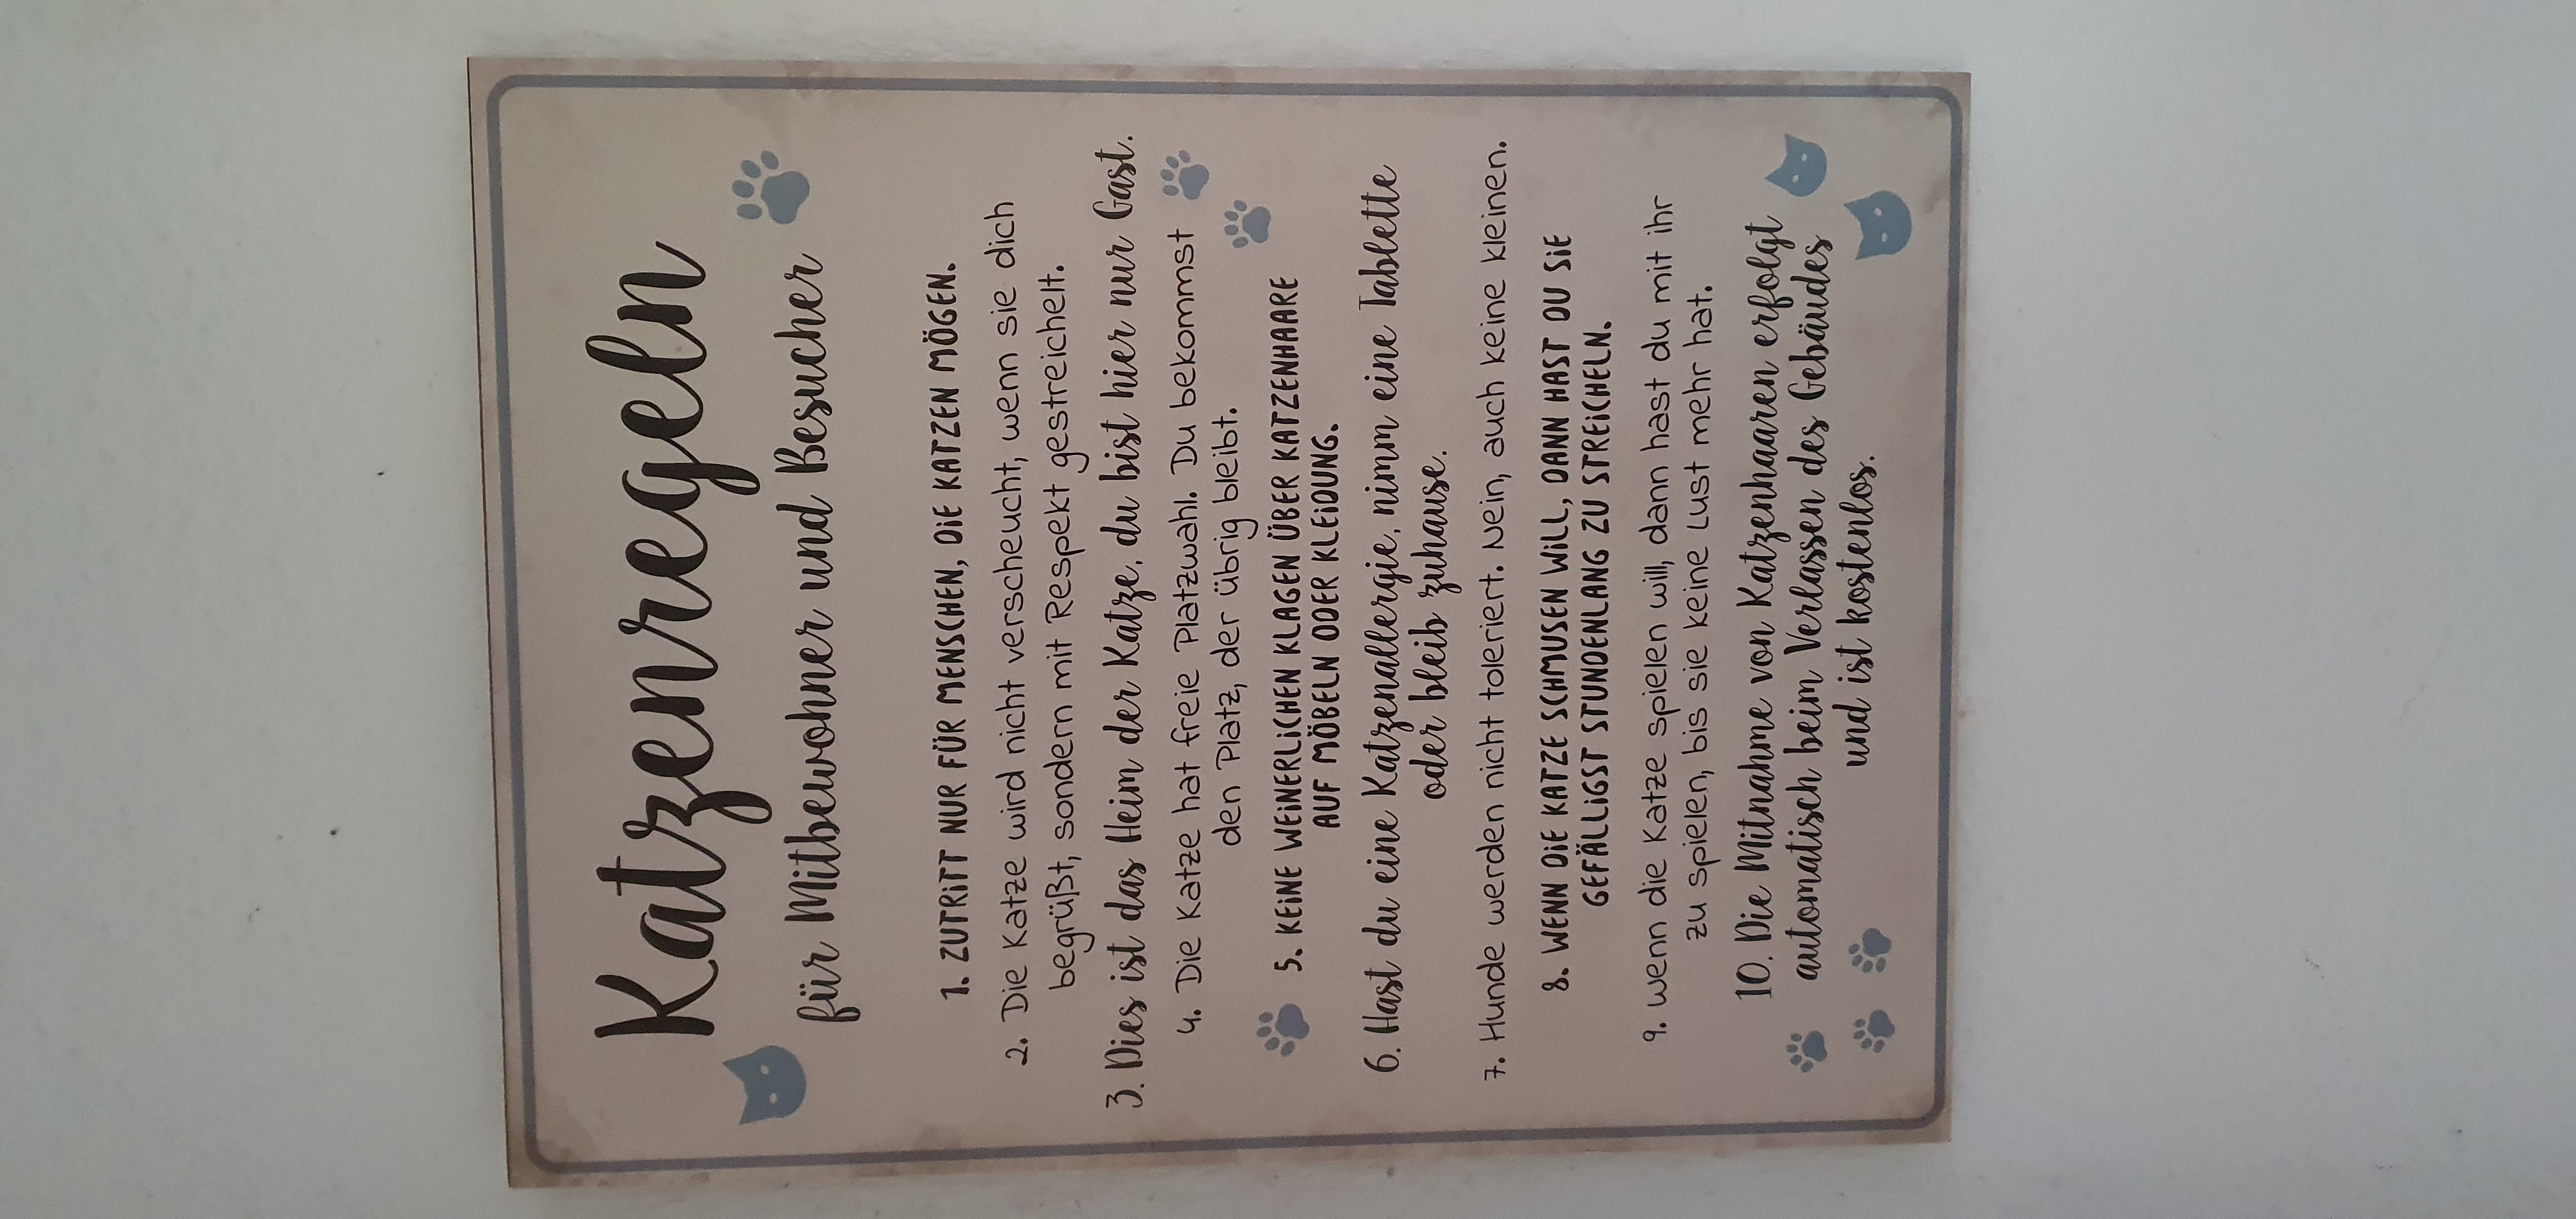 Katzenregeln
für Mitbewohner und Besucher
1. ZUTRITT NUR FÜR MENSCHEN, DIE KATZEN MÖGEN.
2. Die Katze wird nicht verscheucht, wenn sie dich
begrüßt, sondern mit Respekt gestreichelt.
3. Dies ist das Heim der Katze, du bist hier nur Gast.
4. Die Katze hat freie Platzwahl. Du bekommst
den Platz, der übrig bleibt.
5. KEINE WEINERLICHEN KLAGEN ÜBER KATZENHAARE
AUF MÖBELN ODER KLEIDUNG.
6. Hast du eine Katzenallergie, nimm eine Tablette
oder bleib zuhause.
7. Hunde werden nicht toleriert. Nein, auch keine kleinen.
8. WENN DIE KATZE SCHMUSEN WILL, DANN HAST DU SIE
GEFÄLLIGST STUNDENLANG ZU STREICHELN.
9. Wenn die Katze spielen will, dann hast du mit ihr
zu spielen, bis sie keine Lust mehr hat.
10. Die Mitnahme von Katzenhaaren erfolgt
automatisch beim Verlassen des Gebäudes
und ist kostenlos.